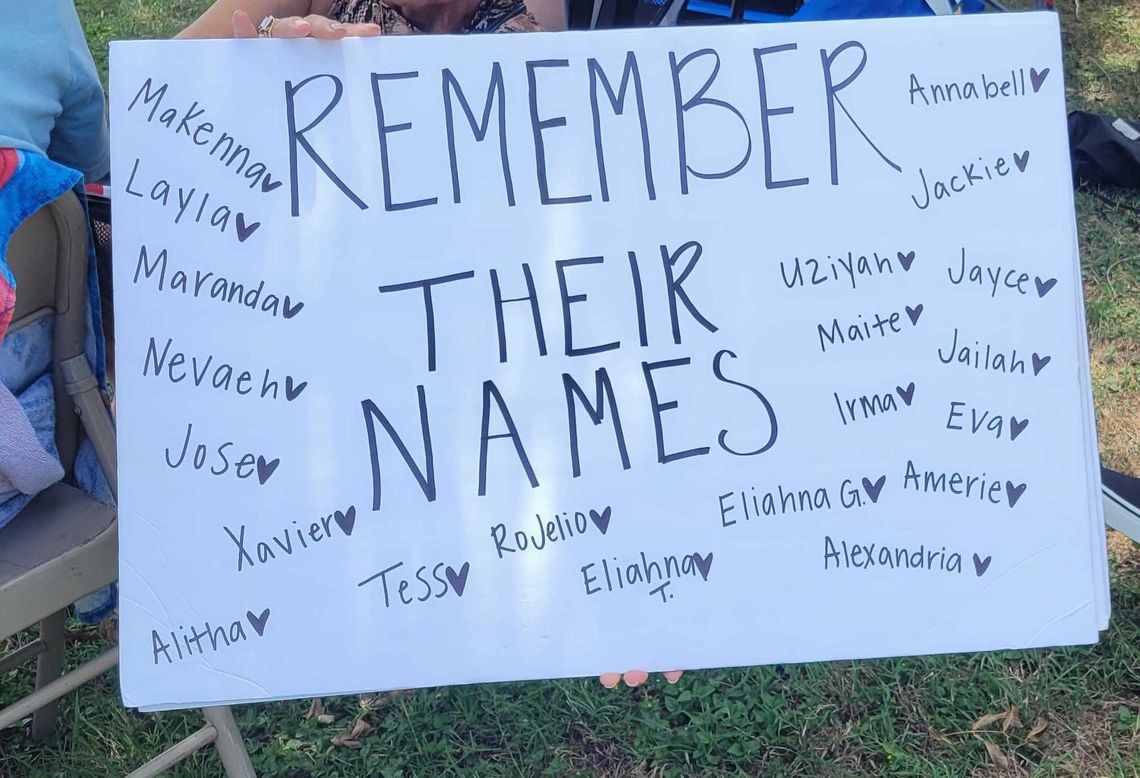 REMEMBER
THEIR
NAMES
Makenna
Layla
Maranda
Nevaeh
Jose
Xavier
Tess
Alitha
Rojelio
Eliahna
T.
Annabell
Jackie
Uziyah
Jayce
Maite
Jailah
Irma
Eva
Eliahna G.
Amerie
Alexandria